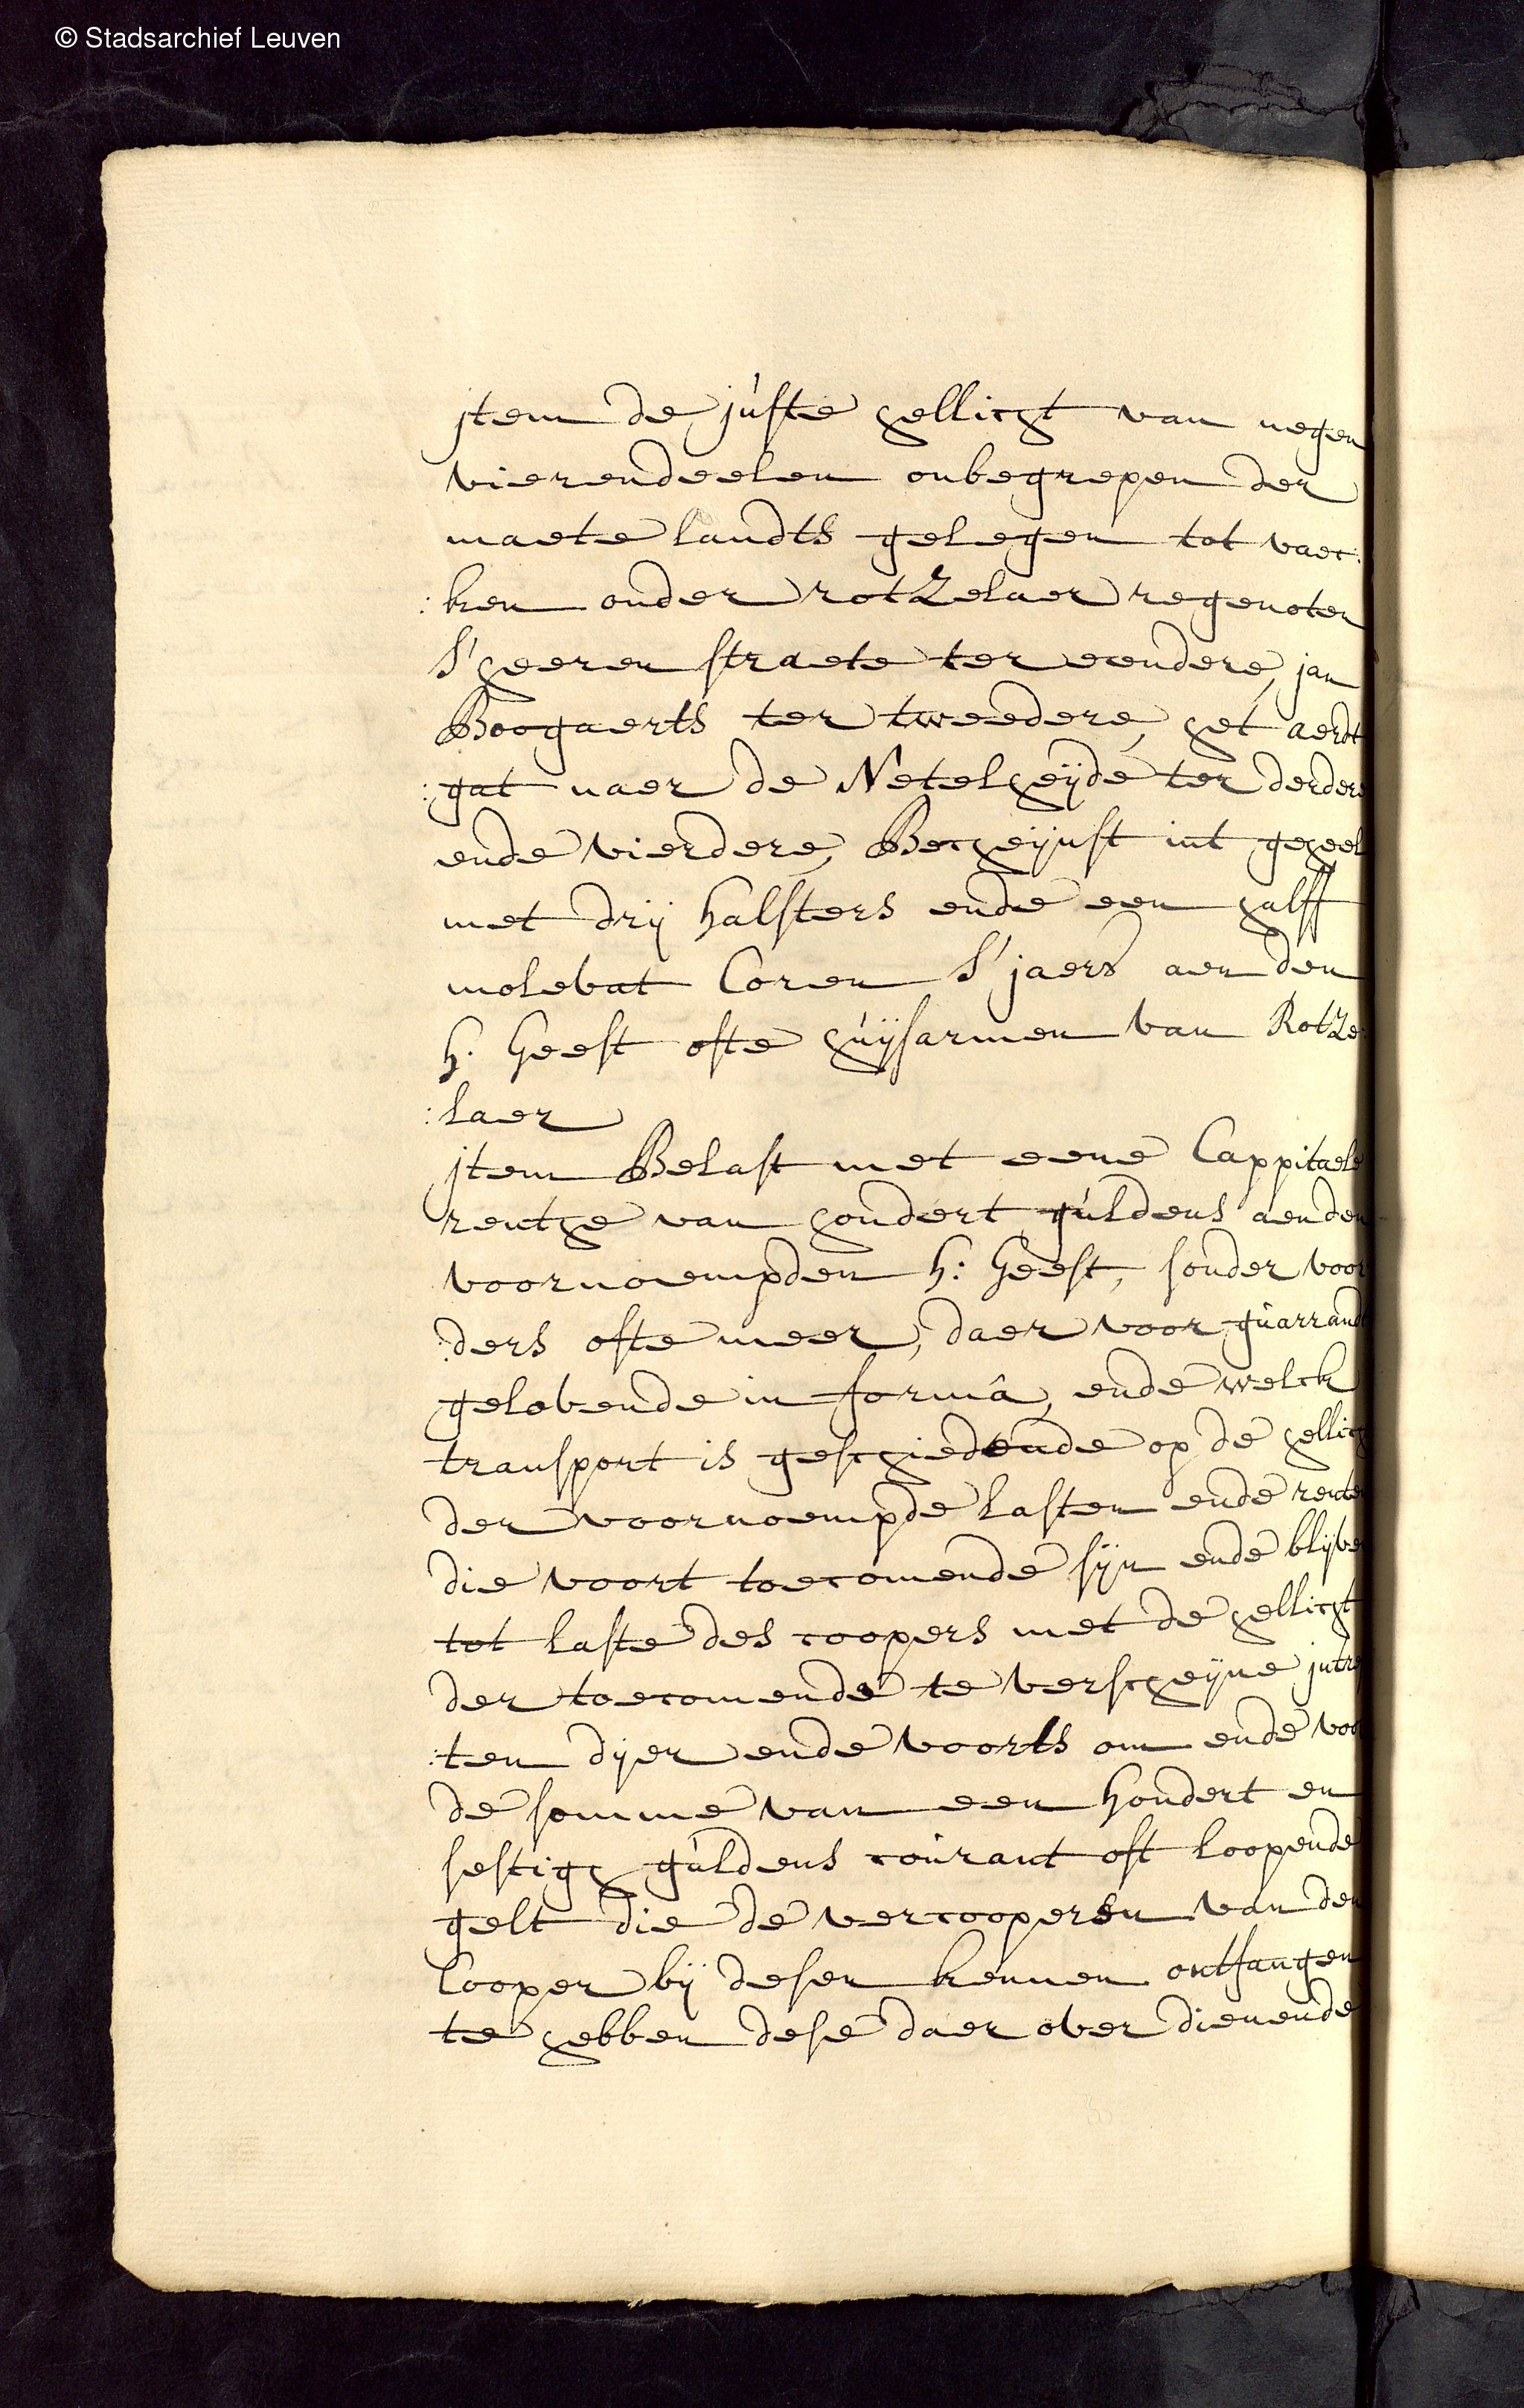 © Stadsarchief Leuven
jtem de juste hellicht van negen
vierendeelen onbegrepen der
maete landts gelegen tot vaec:
:ken onder rotZelaer regenoten
S'heeren straete ter eendere, jan
Boogaerts ter tweedere, het aerdt
:gat naer de Netelheijde ter derdere
ende vierdere, Becheijnst int geheel
met drij halsters ende een halff
molevat Coren S'jaers aen den
H. Geest ofte huijsarmen van RotZe:
:laer
jtem Belast met eene Cappitaele
renthe van hondert guldens aenden
voornoempden H: Geest, sonder voor
:ders ofte meer, daer voor guarrandt
gelovende in formâ, ende welck
transport is geschiedende op de hellich
der voornoempde lasten ende renten
die voort toecomende sijn ende blijven
tot laste des coopers met de hellicht
der toecomende te verscheijne intre
:ten dijer ende voorts om ende voor
de somme van een hondert en
sestigh guldens courant oft loopende
gelt die de vercooperen van den
Cooper bij desen kennen ontfangen
te hebben dese daer over dienende